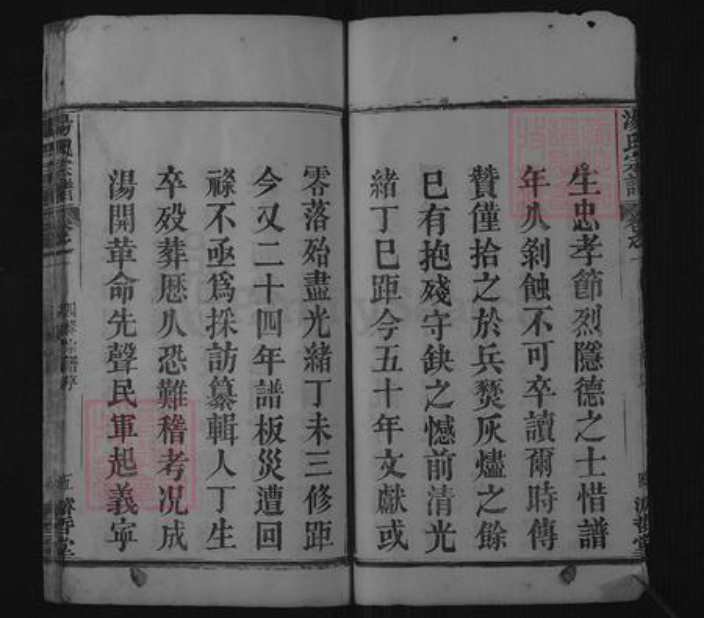 生忠孝節烈隱德之士惜譜
年久剝蝕不可卒讀爾時傳
贊僅拾之於兵燹灰燼之餘
已有抱殘守缺之憾前清光
緒丁巳距今五十年文獻或
零落殆盡光緒丁未三修距
今又二十四年譜板災遭回
祿不亟爲採訪纂輯人丁生
卒殁葬厯久恐難稽考况成
湯開革命先聲民軍起義寧
湯氏宗譜
卷之一